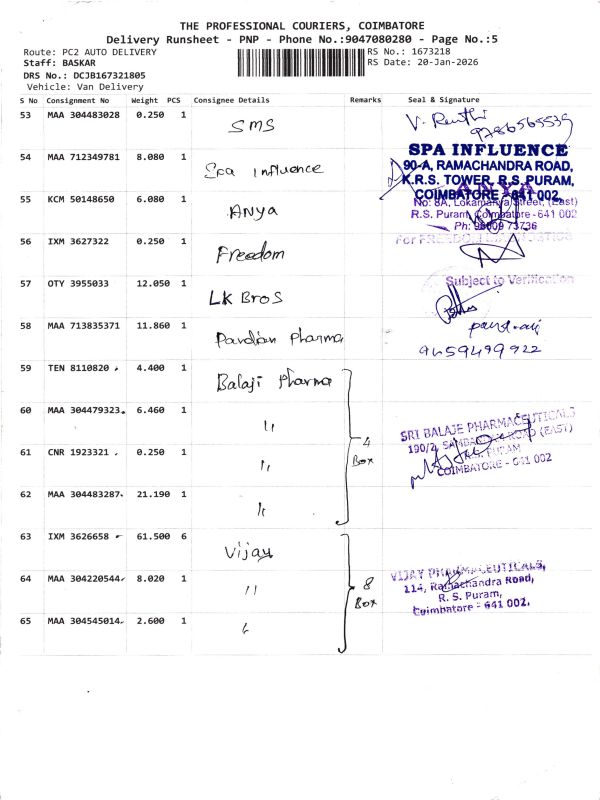 THE PROFESSIONAL COURIERS, COIMBATORE
Delivery Runsheet - PNP - Phone No.:9047080280 - Page No.:5
Route: PC2 AUTO DELIVERY
RS No.: 1673218
Staff: BASKAR
RS Date: 20-Jan-2026
DRS No.: DCJB167321805
Vehicle: Van Delivery
S No Consignment No Weight PCS Consignee Details Remarks Seal & Signature
53 MAA 304483028 0.250 1 SMS
9786565539
54 MAA 712349781 8.080 1 Spa Influence
SPA INFLUENCE
90-A, RAMACHANDRA ROAD,
K.R.S. TOWER, R.S. PURAM,
COIMBATORE - 641 002.
55 KCM 50148650 6.080 1 ANYA
ANYA
No: 8A, Lokamanya Street, (East)
R.S. Puram, Coimbatore - 641 002
Ph: 96009 73736
56 IXM 3627322 0.250 1 Freedom
For FREEDOM
57 OTY 3955033 12.050 1 LK Bros
Subject to Verification
58 MAA 713835371 11.860 1 Pandian Pharma
9659499922
59 TEN 8110820 4.400 1 Balaji Pharma
60 MAA 304479323 6.460 1 "
4
Box
SRI BALAJE PHARMACEUTICALS
190/2, SAMBANDAM ROAD (EAST)
R.S. PURAM
COIMBATORE - 641 002
61 CNR 1923321 0.250 1 "
62 MAA 304483287 21.190 1 "
63 IXM 3626658 61.500 6 Vijay
64 MAA 304220544 8.020 1 "
8
Box
VIJAY PHARMACEUTICALS,
114, Ramachandra Road,
R. S. Puram,
Coimbatore - 641 002.
65 MAA 304545014 2.600 1 "